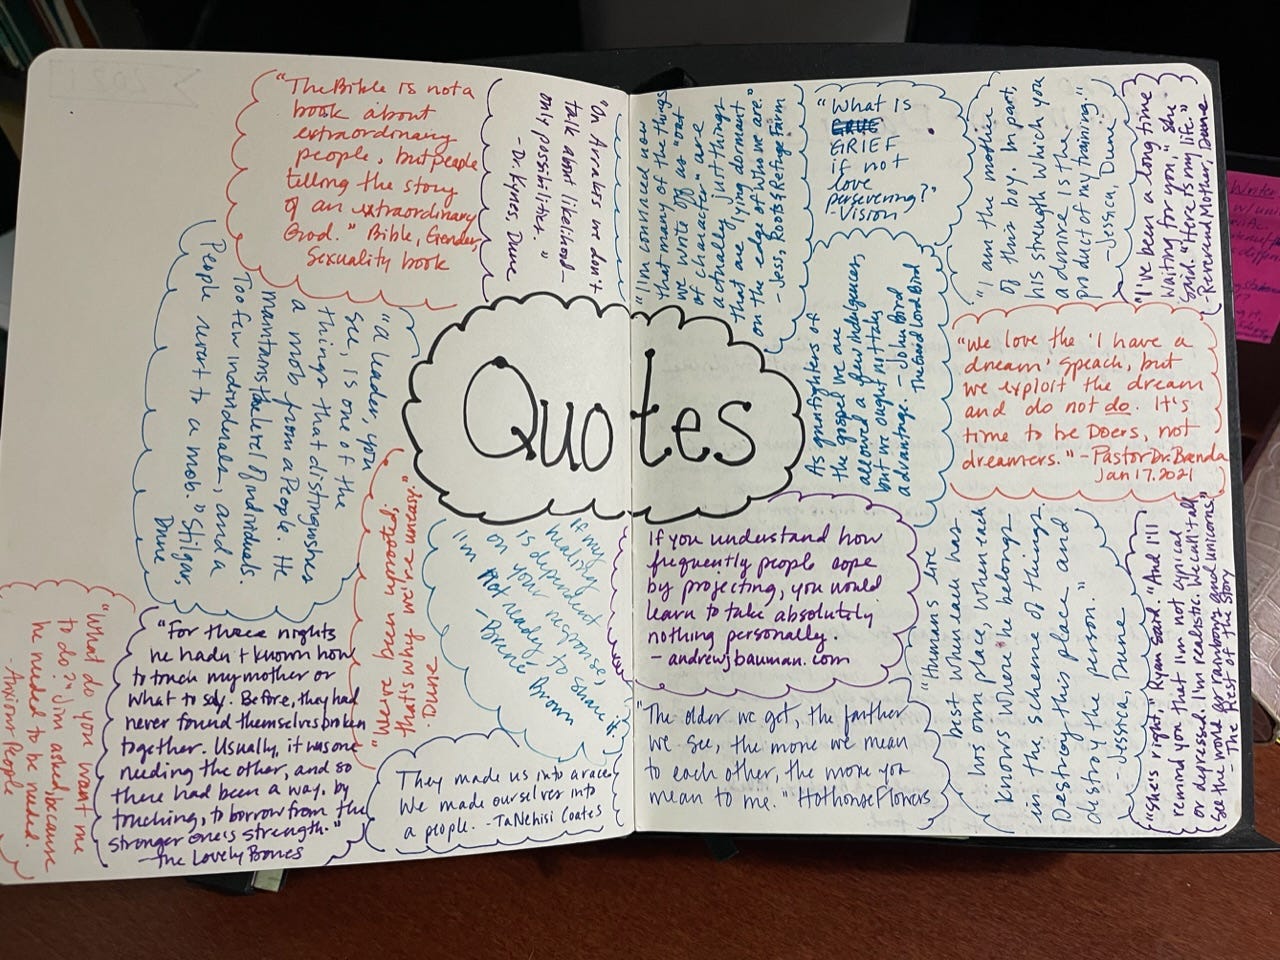 "The Bible is not a
book about
extraordinary
people, but people
telling the story
of an extraordinary
God." Bible, Gender,
Sexuality book
"On Arrakis we don't
talk about likelihood—
only possibilities."
- Dr. Kynes, Dune
"A leader, you
see, is one of the
things that distinguishes
a mob from a People. He
maintains the level of individuals.
Too few individuals, and a
People revert to a mob." Stilgar,
Dune
"We've been uprooted;
that's why we're uneasy."
- Dune
"What do you want me
to do?" Jim asked, because
he needed to be needed.
- Anxious People
"For three nights
he hadn't known how
to touch my mother or
what to say. Before, they had
never found themselves broken
together. Usually, it was one
needing the other, and so
there had been a way, by
touching, to borrow from the
stronger one's strength."
- The Lovely Bones
They made us into a race.
We made ourselves into
a people. - TaNehisi Coates
If my
healing
is dependent
on your response,
I'm not ready to share it.
- Brené Brown
Quotes
"I'm convinced now
that many of the things
we write off as "out
of character" are
actually just things
that are lying dormant
on the edge of who we are.
- Jess, Roots & Refuge Farm
"What is
GRIEF
if not
love
persevering?"
- Vision
"I am the mother
of this boy. In part,
his strength which you
admire is the
product of my training."
- Jessica, Dune
"I've been a long time
waiting for you," she
said. "Here is my life."
- Reverend Mother, Dune
As gunfighters of
the gospel we are
allowed a few indulgences,
but we ought not take
advantage. - John Brown
The Good Lord Bird
"We love the 'I have a
dream' speach, but
we exploit the dream
and do not do. It's
time to be Doers, not
dreamers." - Pastor Dr. Brenda
Jan 17. 2021
If you understand how
frequently people cope
by projecting, you would
learn to take absolutely
nothing personally.
- andrewjbauman.com
"The older we get, the farther
we see, the more we mean
to each other, the more you
mean to me." Hothouse Flowers
"Humans live
best when each has
his own place, when each
knows where he belongs
in the scheme of things.
Destroy this place and
destroy the person."
- Jessica, Dune
"She's right," Ryan said. "And I'll
remind you that I'm not cynical
or depressed. I'm realistic. We can't all
see the world as rainbows and unicorns."
- The Rest of the Story